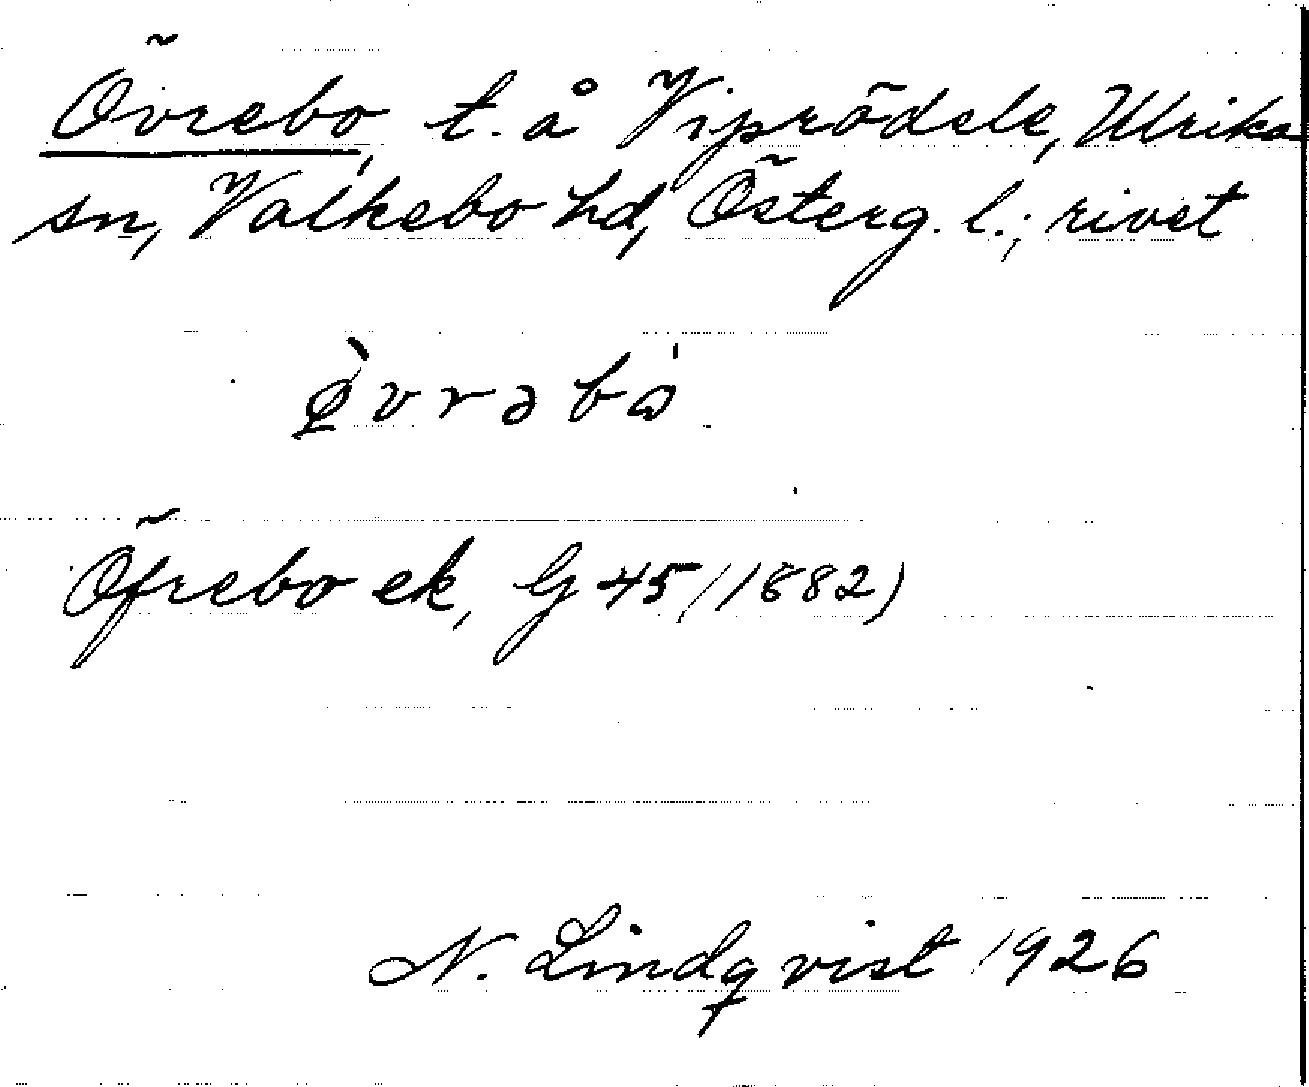 Övrebo, t. å Viprödele, Ulrika
sn, Valkebo hd, Österg. l.; rivet
ø̀vrəbω̍
Öfrebo ek, G 45 (1882)
N. Lindqvist 1926